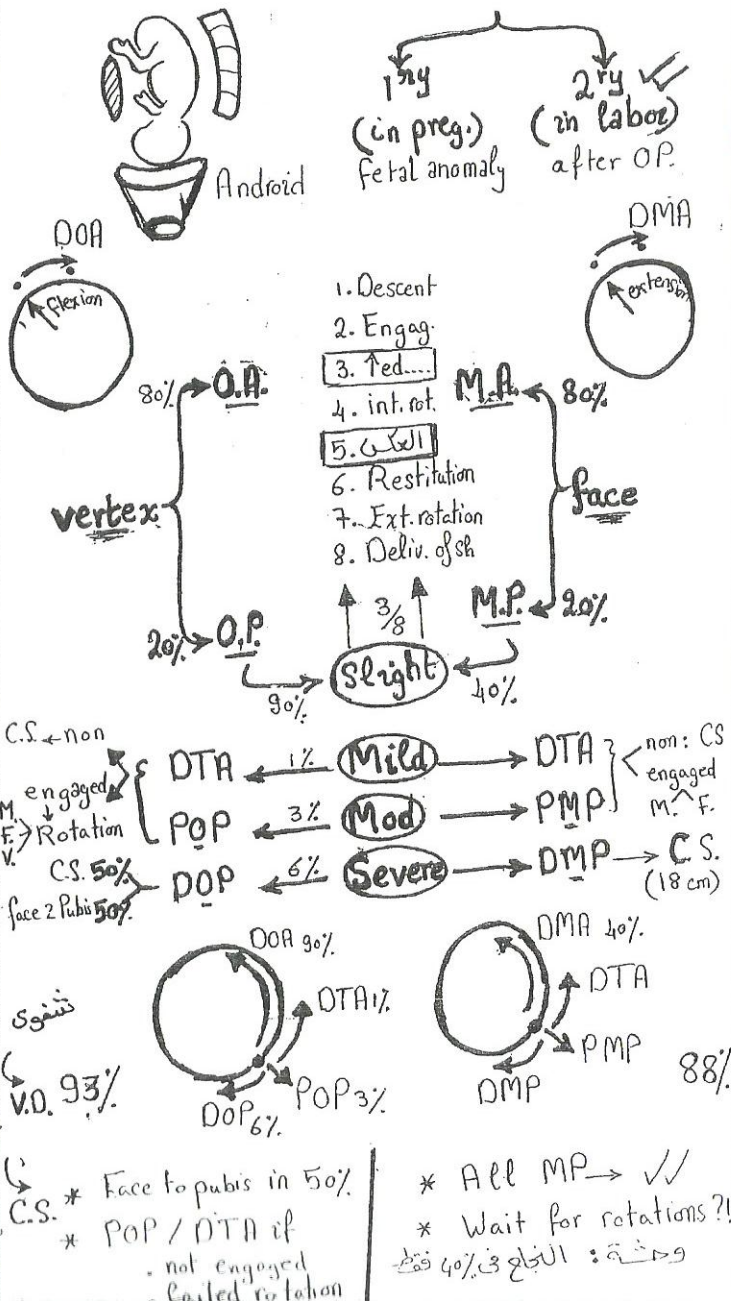 1ry
(in preg.)
fetal anomaly
2ry
(in labor)
after OP.
Android
DOA
flexion
DMA
extension
1. Descent
2. Engag.
3. ↑ed....
4. int. rot.
5. العكس
6. Restitution
7. Ext. rotation
8. Deliv. of sh
vertex
80% O.A.
20% O.P.
90%
face
M.A. 80%
M.P. 20%
40%
3/8
Slight
C.S. ← non
engaged
Rotation
M.
F.
V.
DTA 1% Mild DTA
POP 3% Mod PMP
DOP 6% Severe DMP → C.S.
(18 cm)
C.S. 50%
face 2 Pubis 50%
non: CS
engaged
M. F.
DOA 90%
DTA 1%
POP 3%
DOP 6%
DMA 40%
DTA
PMP
DMP
V.D. 93%
88%
C.S.
* Face to pubis in 50%
* POP / DTA if
. not engaged
. failed rotation
* All MP →
* Wait for rotations?!
وحشة : النجاح فى 40% فقط